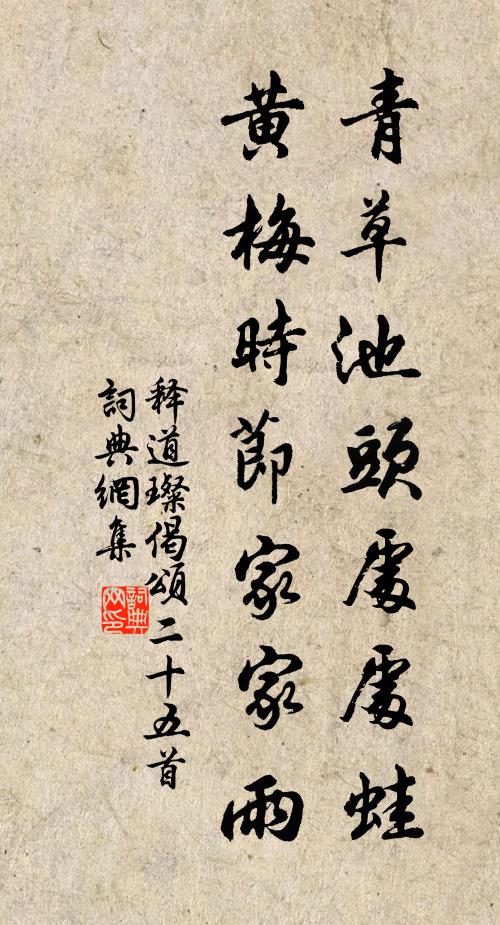 青草池頭處處蛙
黃梅時節家家雨
释道璨偈頌二十五首
詞典網集
詞典网印